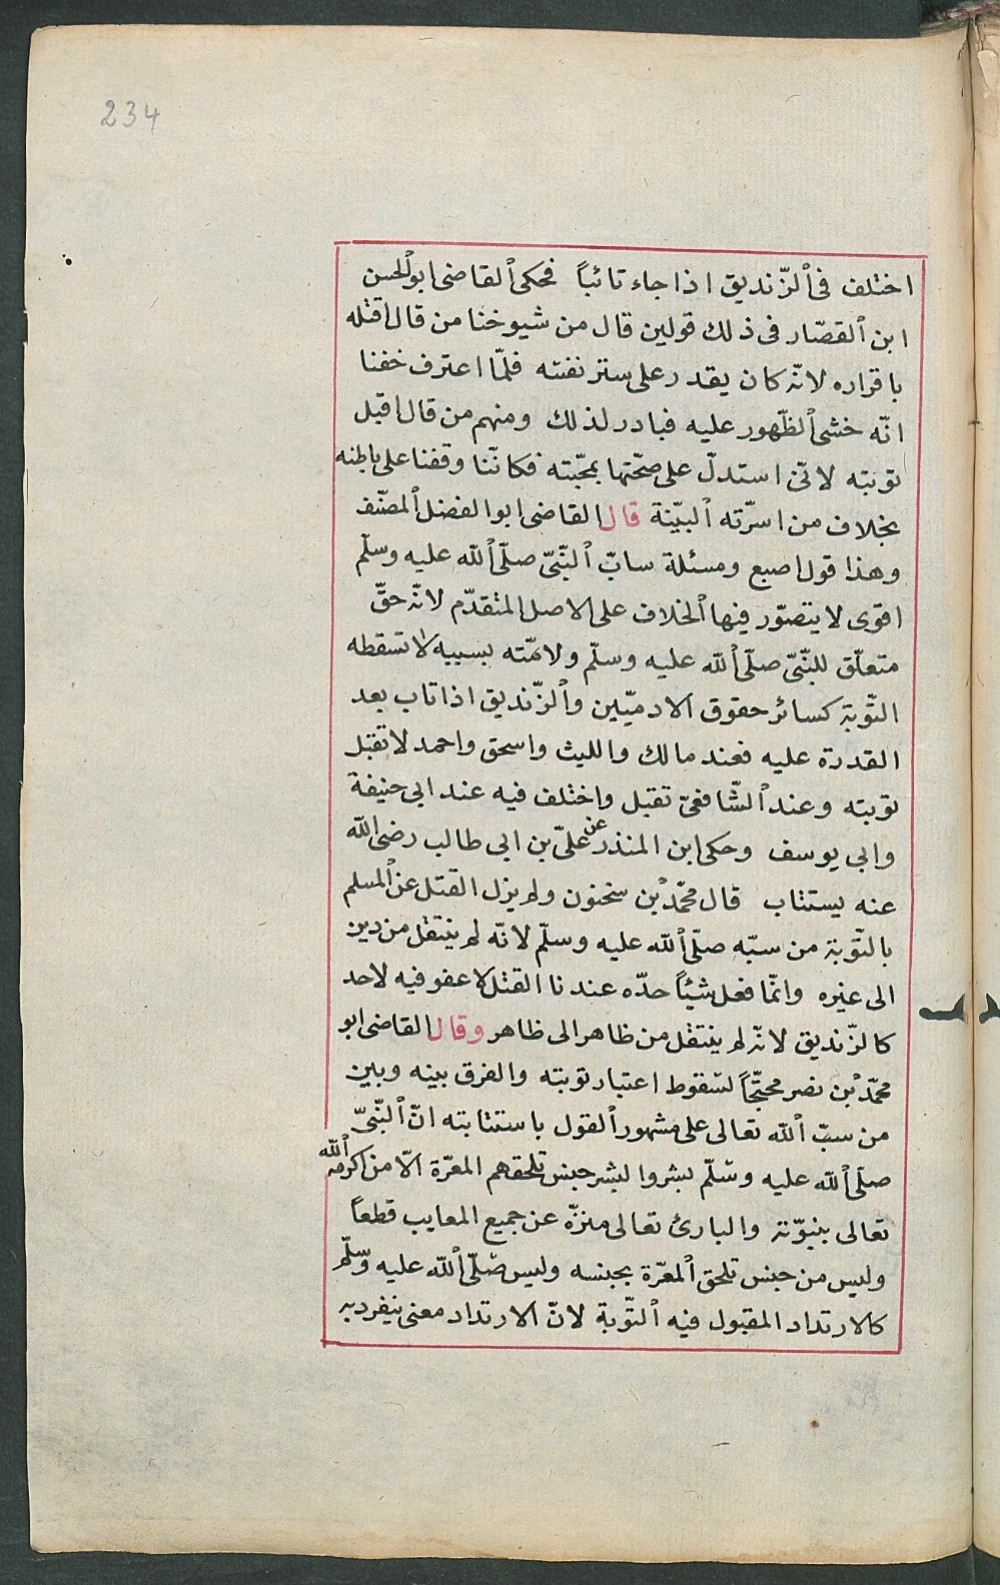 234
اختلف فى الزّنديق اذا جاء تائباً فحكى القاضى ابو الحسن
ابن القصّار فى ذلك قولين قال من شيوخنا من قال اقتله
باقراره لانّه كان يقدر على ستر نفسه فلمّا اعترف خفنا
انّه خشى الظّهور عليه فبادر لذلك ومنهم من قال اقبل
توبته لانّى استدلّ على صحّتها بمجيّته فكانّنا وقفنا على باطنه
بخلاف من اسرّته البيّنة قال القاضى ابو الفضل المصنّف
وهذا قول اصبع ومسئلة سابّ النّبىّ صلّى الله عليه وسلّم
اقوى لا يتصوّر فيها الخلاف على الاصل المتقدّم لانّه حقّ
متعلّق للنّبىّ صلّى الله عليه وسلّم ولامّته بسببه لا تسقطه
التّوبة كسائر حقوق الادميّين والزّنديق اذا تاب بعد
القدرة عليه فعند مالك والليث واسحق واحمد لا تقبل
توبته وعند الشّافعىّ تقبل واختلف فيه عند ابى حنيفة
وابى يوسف وحكى ابن المنذر عن علىّ بن ابى طالب رضى الله
عنه يستتاب قال محمّد بن سحنون ولم يزل القتل عن المسلم
بالتّوبة من سبّه صلّى الله عليه وسلّم لانّه لم ينتقل من دين
الى غيره وانّما فعل شيئاً حدّه عندنا القتل لا عفو فيه لاحد
كالزّنديق لانّه لم ينتقل من ظاهر الى ظاهر وقال القاضى ابو
محمّد بن نصر محتجّاً لسقوط اعتبار توبته والفرق بينه وبين
من سبّ الله تعالى على مشهور القول باستتابته انّ النّبىّ
صلّى الله عليه وسّلّم بشر والبشر جنس تلحقهم المعرّة الّا من اكرمه الله
تعالى بنبوّته والبارئ تعالى منزّه عن جميع المعايب قطعاً
وليس من جنس تلحق المعرّة بجنسه وليس صّلّى الله عليه وسلّم
كالارتداد المقبول فيه التّوبة لانّ الارتداد معنى ينفرد به